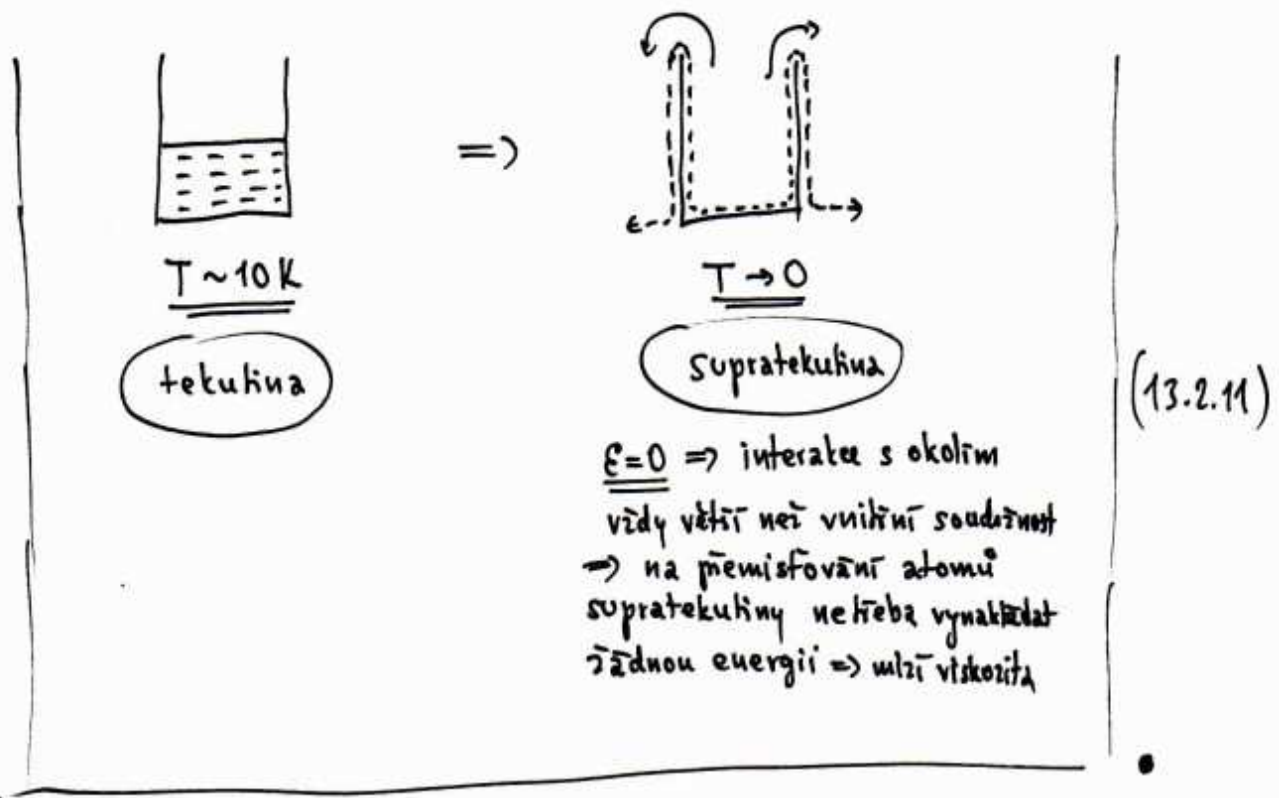 =>
T ~ 10 K
T → 0
tekutina
supratekutina
(13.2.11)
ε=0 => interakce s okolím
vždy větší než vnitřní soudržnost
=> na přemisťování atomů
supratekutiny netřeba vynakládat
žádnou energii => mizí viskozita